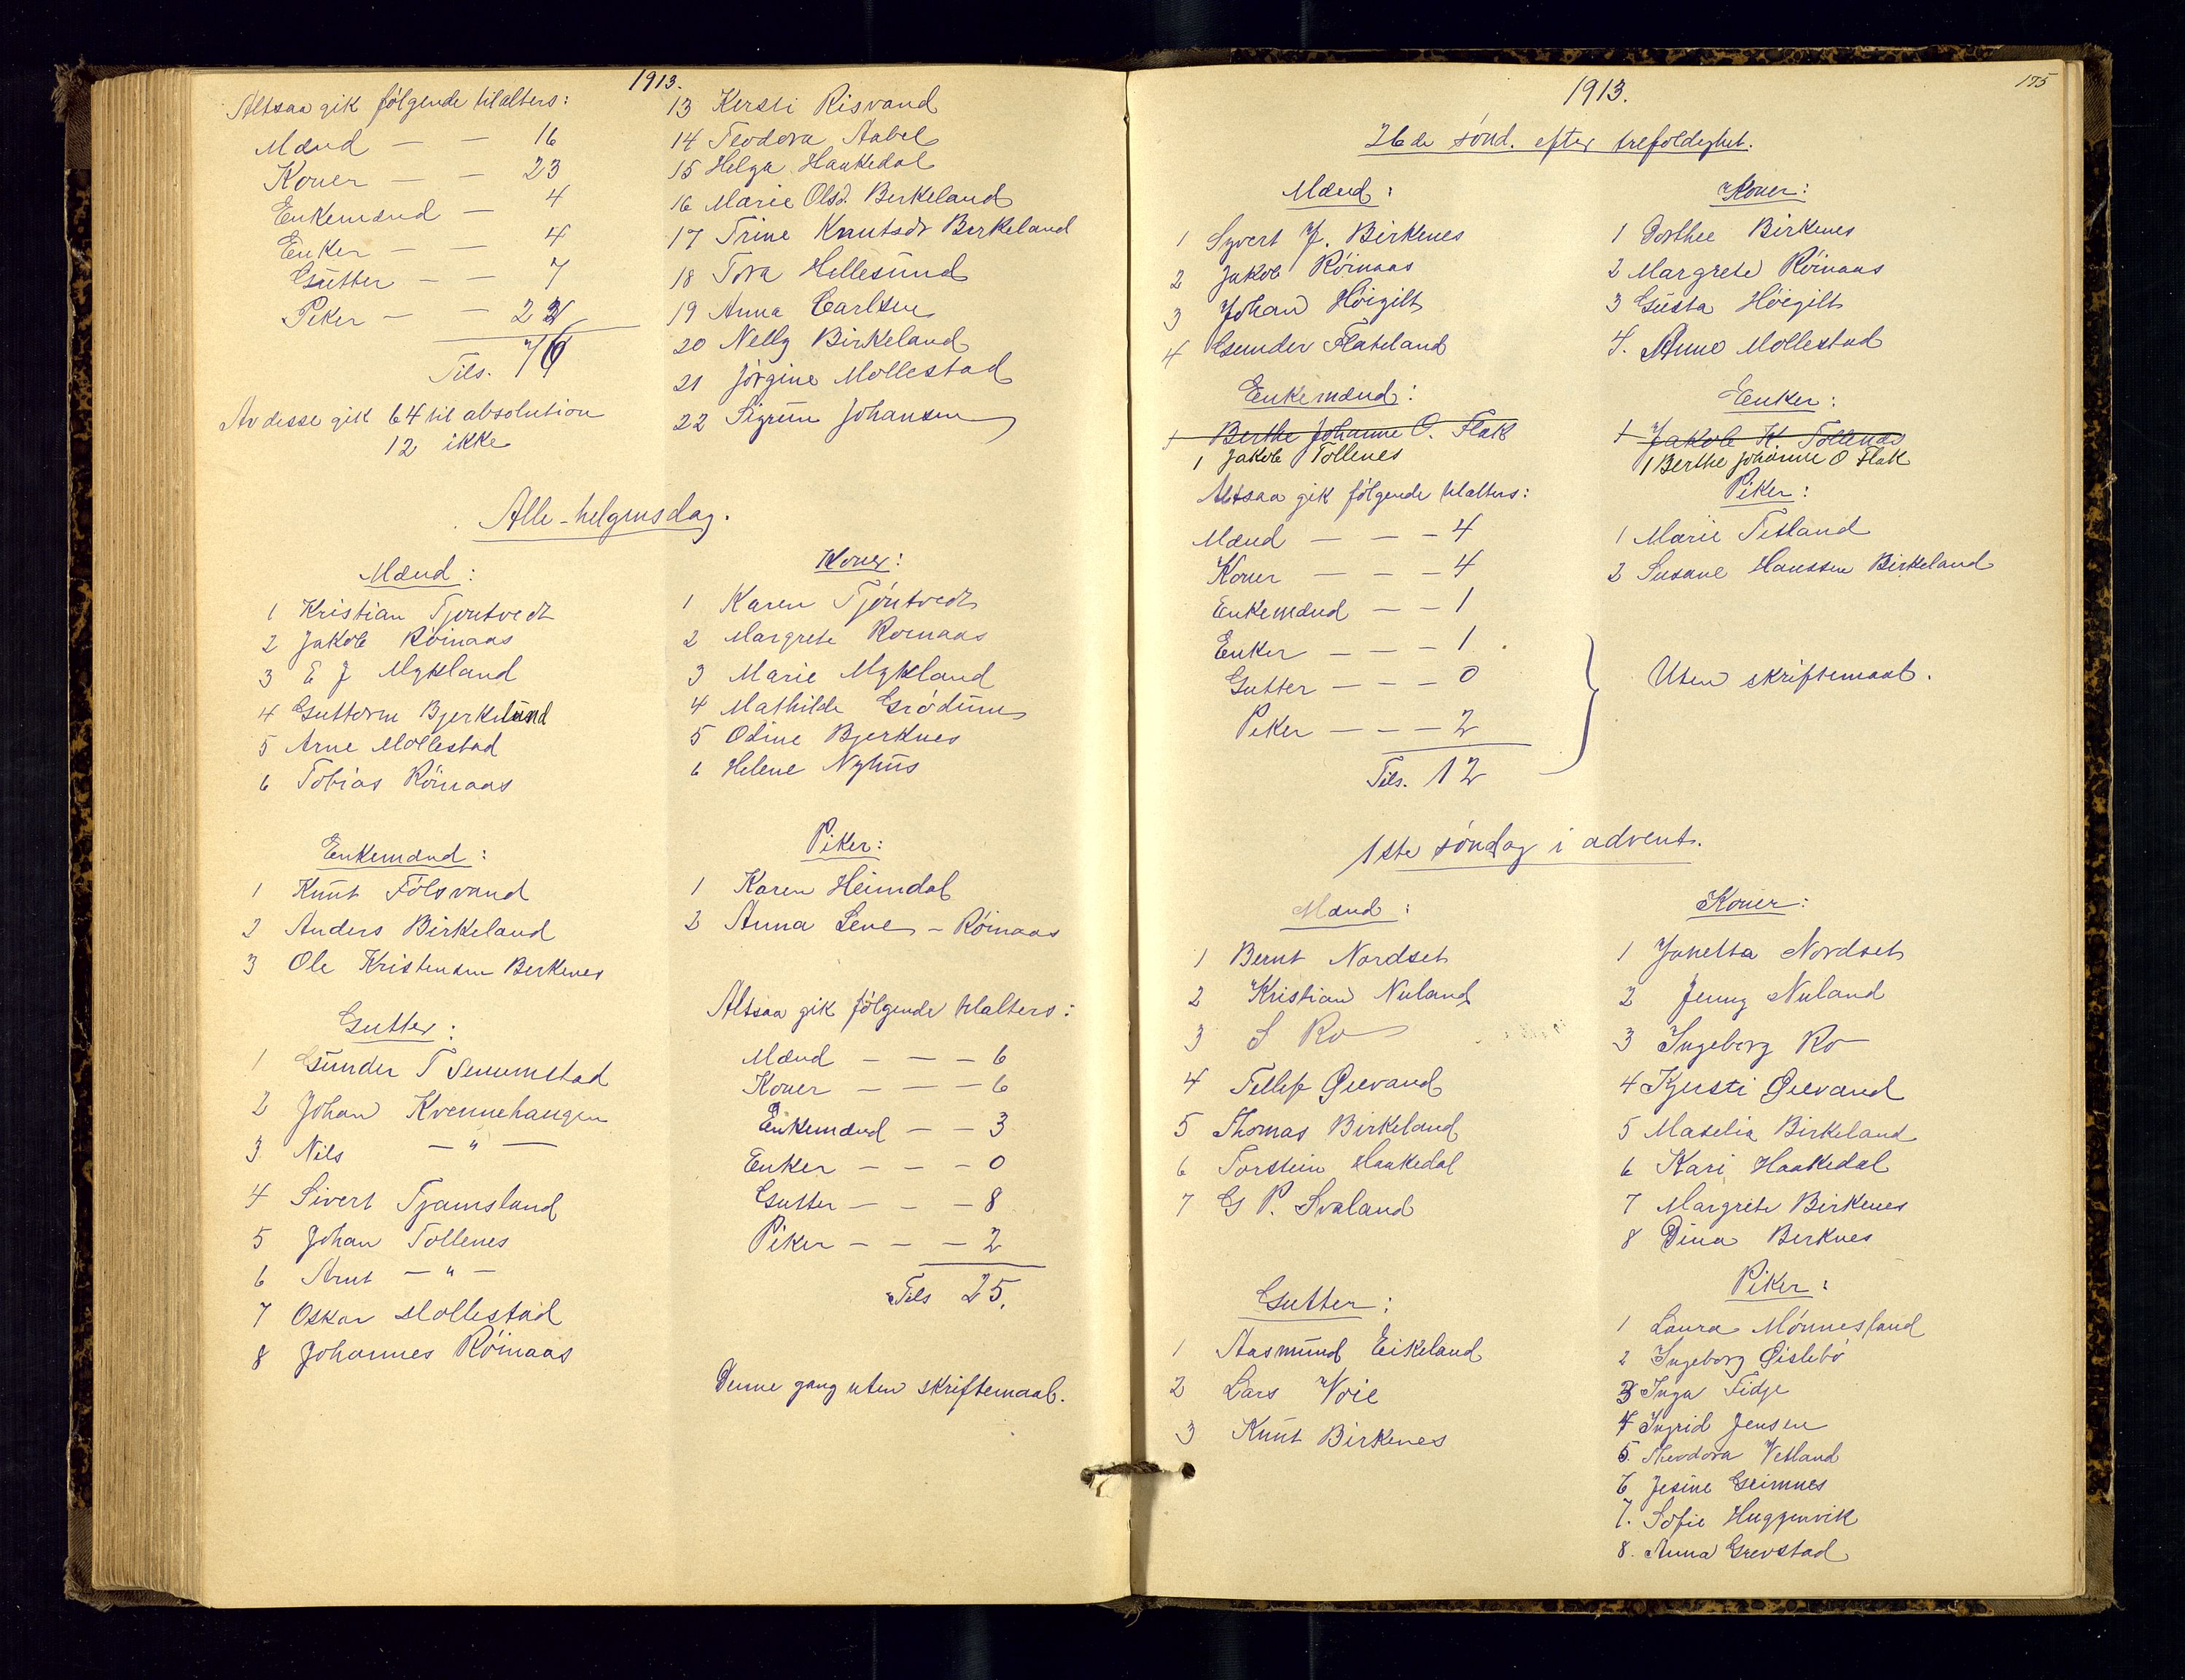 1913.
Altsaa gik følgende tilalters:
Mænd — — 16
Koner — — 23
Enkemænd — 4
Enker — — 4
Gutter — — 7
Piker — — 22
Tils. 76
Av desse gik 64 til absolution
12 ikke
13 Kersti Risvand
14 Teodora Aabel
15 Helga Haakedal
16 Marie Olsd. Birkeland
17 Trine Knutsdr Berkeland
18 Tora Hellesund
19 Anna Carlsen
20 Nelly Birkeland
21 Jørgine Mollestad
22 Sigrun Johansen
Alle-helgensdag.
Mænd:
1 Kristian Tjøntvedt
2 Jakob Röinaas
3 E J Mykland
4 Guttorm Bjerkelund
5 Arne Mollestad
6 Tobias Röinaas
Koner:
1 Karen Tjøntvedt
2 Margrete Roinaas
3 Marie Mykland
4 Mathilde Grødum
5 Odine Bjerknes
6 Helene Nyhus
Enkemænd:
1 Knut Fölsvand
2 Anders Birkeland
3 Ole Kristensen Berkenes
Piker:
1 Karen Heimdal
2 Anna Lene Röinaas
Gutter:
1 Gunder T Senumstad
2 Johan Kvennehaugen
3 Nils — " —
4 Sivert Tjamsland
5 Johan Tollenes
6 Arnt — " —
7 Oskar Mollestad
8 Johannes Röinaas
Altsaa gik følgende tilalters:
Mænd — — — 6
Koner — — — 6
Enkemænd — — 3
Enker — — — 0
Gutter — — — 8
Piker — — — 2
Tils 25.
Denne gang uten skriftemaal.
175
1913.
26de sønd. efter trefoldighet.
Mænd:
1 Syvert J. Birkenes
2 Jakob Röinaas
3 Johan Höigilt
4 Gunder Flateland
Koner:
1 Dorthee Birkenes
2 Margrete Röinaas
3 Gusta Höigilt
4. Anne Mollestad
Enkemænd:
1 Berthe Johanne O. Flak
1 Jakob Tollenes
Enker:
1 Jakob K. Tollenes
1 Berthe Johanne O Flak
Piker:
1 Marie Tetland
2 Susane Hanssen Birkeland
Altsaa gik følgende tilalters:
Mænd — — — 4
Koner — — — 4
Enkemænd — — 1
Enker — — — 1
Gutter — — — 0
Piker — — — 2
Tils. 12
Uten skriftemaal.
1ste søndag i advent.
Mænd:
1 Bernt Nordset
2 Kristian Nuland
3 S Ro
4 Tellef Øievand
5 Thomas Birkeland
6 Torstein Haakedal
7 G P. Svaland
Koner:
1 Janetta Nordset
2 Jenny Nuland
3 Ingeborg Ro
4 Kjersti Øievand
5 Maselia Birkeland
6 Kari Haakedal
7 Margrete Birkenes
8 Dina Berknes
Gutter:
1 Aasmund Eikeland
2 Lars Voie
3 Knut Birkenes
Piker:
1 Laura Mönnesland
2 Ingeborg Øislebö
3 Inga Fidje
4 Ingrid Jensen
5. Theodora Vetland
6 Jesine Grimnes
7. Sofie Huggenvik
8. Anna Grevstad